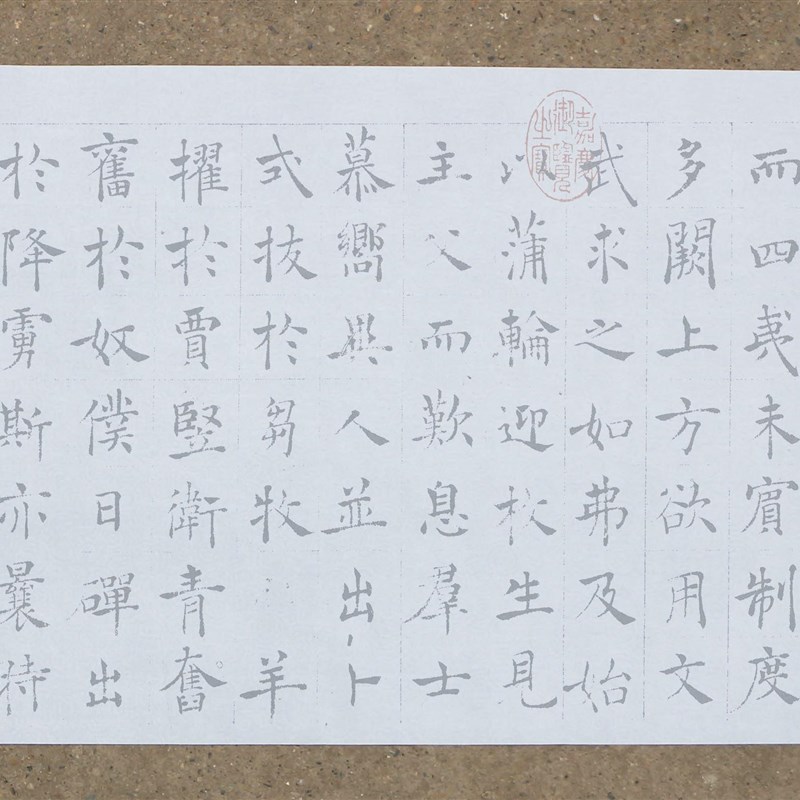 而四夷未賓制度
多闕上方欲用文
武求之如弗及始
以蒲輪迎枚生見
主父而歎息羣士
慕嚮異人並出卜
式拔於芻牧羊
擢於賈豎衛青奮
奮於奴僕日磾出
於降虜斯亦曩
嘉慶御覽之寶